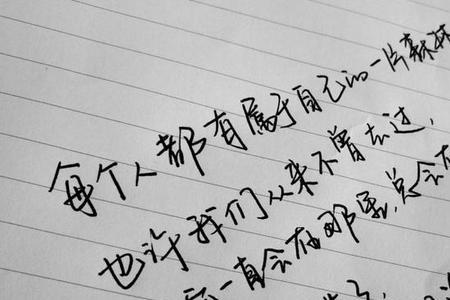 每个人都有属于自己的一片森林
也许我们从来不曾去过,
它一直会在那里,总会在